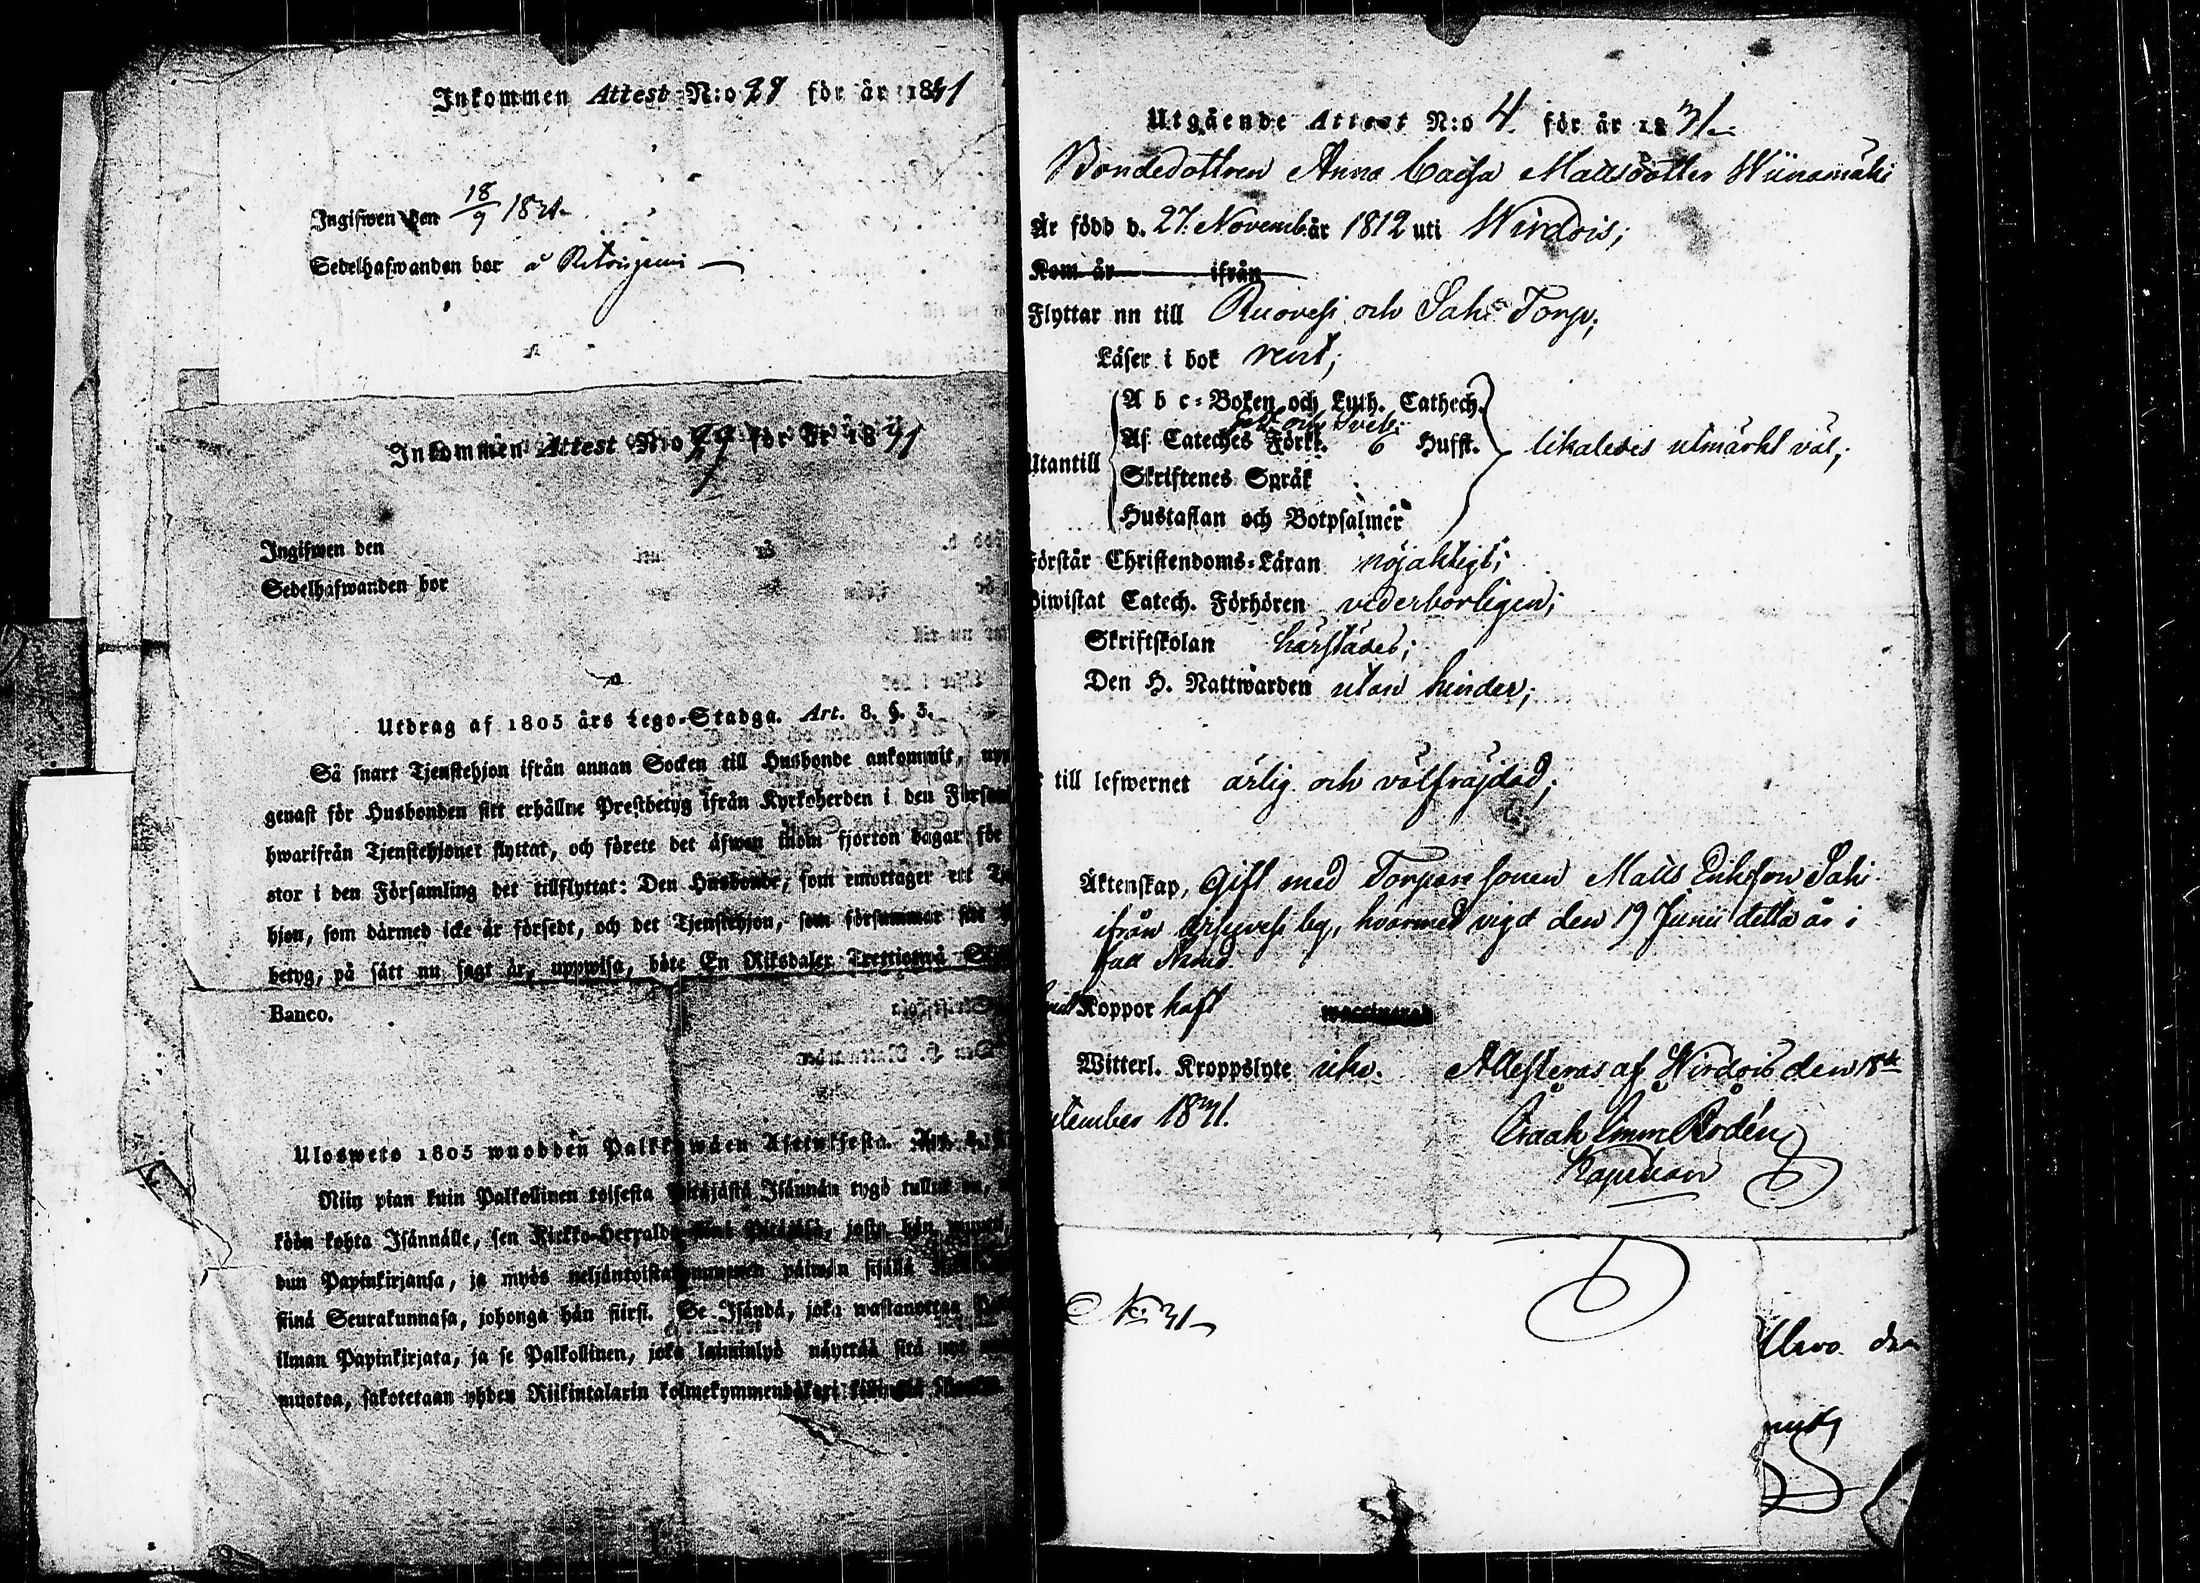 Inkommen Attest N:o 28 för år 1831
Ingifwen den 18/9 1831
Sedelhafwanden bor å
Inkommen Attest N:o 29 för år 1831
Ingifwen den
Sedelhafwanden bor
Utdrag af 1805 års Lego-Stadga. Art. 8. §. 3.
Så snart Tjenstehjon ifrån annan Socken till Husbonde ankommit, upp
genast för Husbonden sitt erhållne Prestbetyg ifrån Kyrkoherden i den Försam
hwarifrån Tjenstehjonet flyttat, och förete det äfwen inom fjorton dagar för
stor i den Församling det tillflyttat: Den Husbonde, som emottager ett Tj
hjon, som därmed icke är försedt, och det Tjenstehjon, som försummar sitt
betyg, på sätt nu sagt är, uppwisa, böte En Riksdaler Trettiotwå Sk
Banco.
Ulosweto 1805 wuodden Palkkawäen Asetuksesta. Art. 8.
Niin pian kuin Palkollinen toisesta Pitäjästä Isännän tygö tullut on,
köön kohta Isännälle, sen Kirkko-Herralda siinä Pitäjäsä, josta hän
dun Papinkirjansa, ja myös neljäntoistakymmenen päiwän sisällä
stinä Seurakunnasa, johonga hän siirst. Se Isändä, joka wastanottaa
ilman Papinkirjata, ja se Palkollinen, joka laiminlyö näyttää sitä nyt
muotoa, sakotetaan yhden Riikintalarin kolmekymmendäkaxi killingiä
Utgående Attest N:o 4 för år 1831
Bondedottren Anna Caisa Mattsdotter Wiinamäki
Är född d. 27. Novemb. år 1812 uti Wirdois;
Kom år ifrån
Flyttar nu till Ruovesi och Sahi Torp;
Läser i bok rent;
A b c-Boken och Luth. Cathech.
Af Cateches Förkl. 6 Hufst. likaledes utmärkt väl;
Utantill
Skriftenes Språk
Hustaflan och Botpsalmer
Förstår Christendoms-Läran nöjaktigt;
Biwistat Catech. Förhören vederbörligen;
Skriftskolan härstädes;
Den H. Nattwarden utan hinder;
till lefwernet ärlig och välfräjdad;
Äktenskap, Gift med Torparesonen Matts Eriksson Sahi
ifrån by, hvarmed vigd den 19 Junii detta år i
Koppor haft
Witterl. Kroppslyte icke. Attesteras af Wirdois den 18de
tember 1831.
Isaak Emm. Rodén
Kapellan
No 31